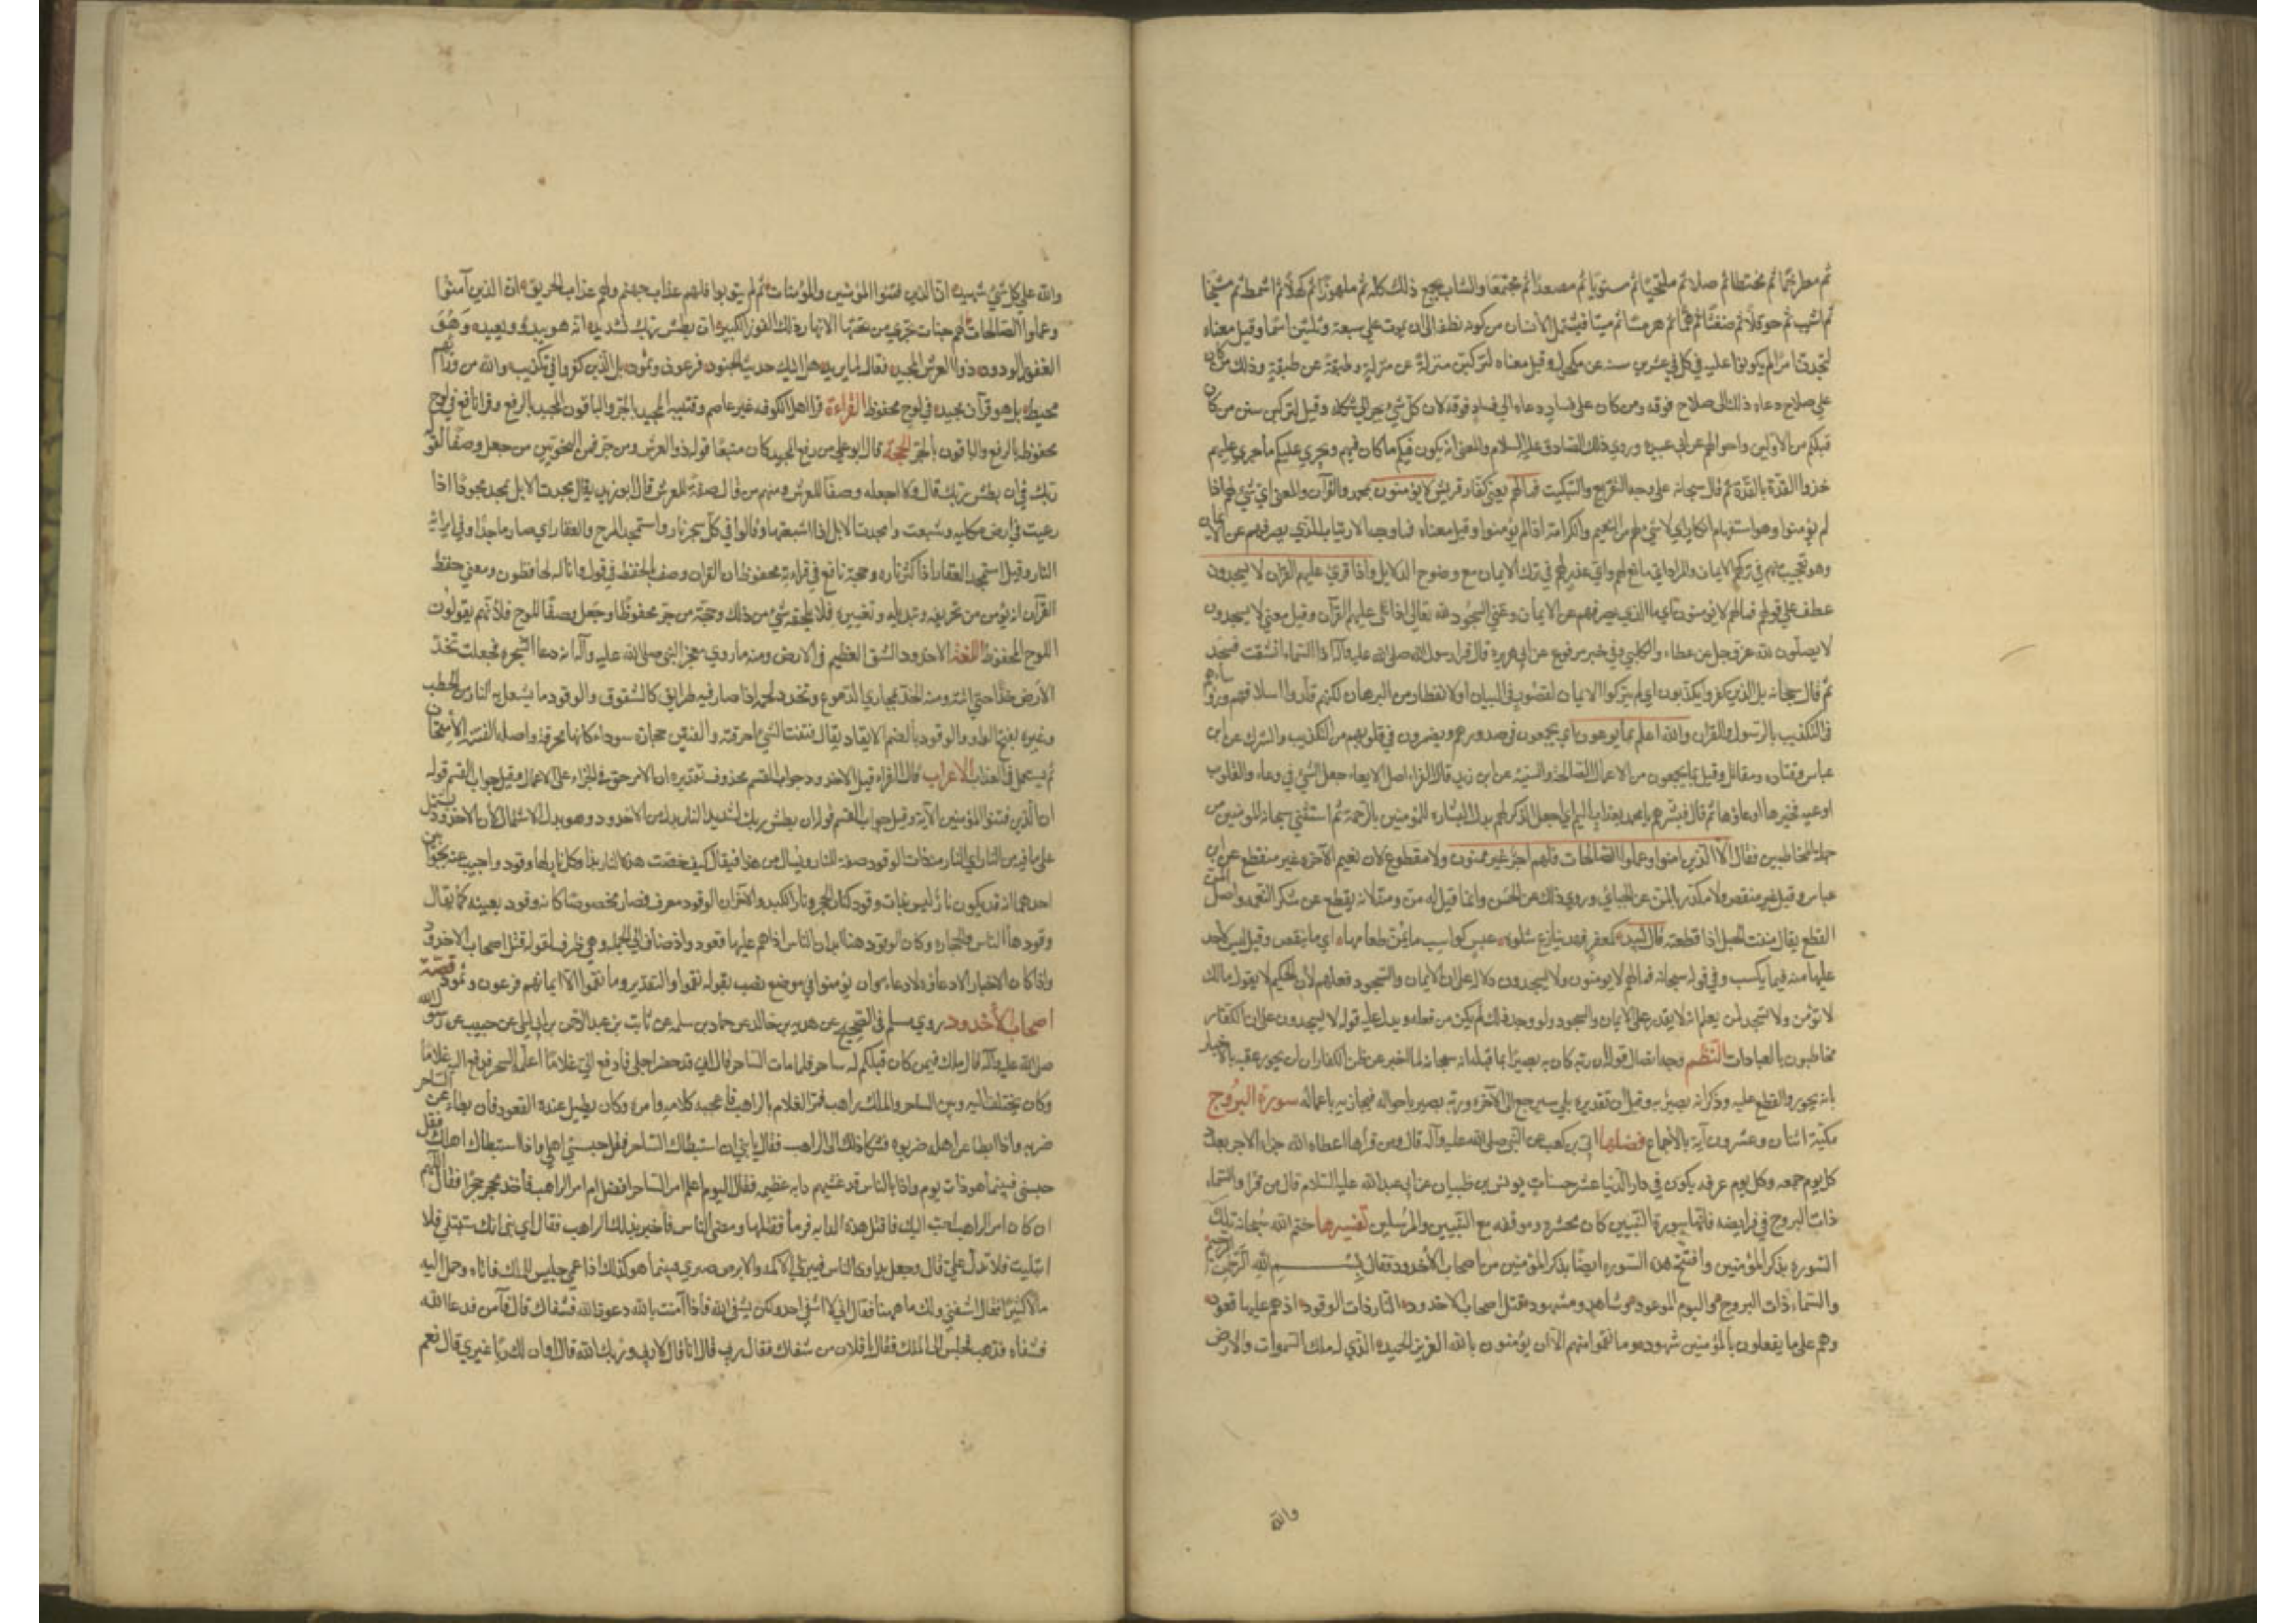 ثم مطرخما ثم مختطا ثم صملا ثم ملتحيا ثم مستويا ثم مصعدا ثم مجتمعا والشاب يجمع ذلك كله ثم ملهوزا ثم كهلا ثم اشمط ثم شيخا
ثم اشيب ثم حوقلا ثم صفتاتا ثم هما ثم هرما ثم ميتا فيشتمل الانسان من كونه نطفة الى ان يموت على سبعة وثلثين اسما وقيل معناه
لتحدثن امرا لم يكونوا عليه في كل عشرين سنة عن مكحول وقيل معناه لتركبن منزلة عن منزلة وطبقة عن طبقة وذلك من كان
على صلاح دعاه ذلك الى صلاح فوقه ومن كان على فساد دعاه الى فساد فوقه لان كل شيء يجر الى شكله وقيل لتركبن سنن من كان
قبلكم من الاولين واحوالهم عن ابي عبيدة وروي ذلك عن الصادق عليه السلام والمعنى انه يكون فيكم ما كان فيهم ويجري عليكم ما جرى عليهم
حذو القذة بالقذة ثم قال سبحانه على وجه التقريع والتبكيت فما لهم يعني كفار قريش لا يؤمنون بمحمد والقرآن والمعنى اي شيء لهم اذا
لم يؤمنوا وهو استفهام انكار اي لا شيء لهم من النعيم والكرامة اذا لم يؤمنوا وقيل معناه فما وجه الارتياب الذي يصرفهم عن الايمان
وهو تعجيب منهم في تركهم الايمان والمراد اي مانع لهم واي عذر لهم في ترك الايمان مع وضوح الدلايل واذا قرئ عليهم القرآن لا يسجدون
عطف على قوله فما لهم لا يؤمنون اي ما الذي يصرفهم عن الايمان وعن السجود لله تعالى اذا تلي عليهم القرآن وقيل معنى لا يسجدون
لا يصلون لله عز وجل عن عطاء والكلبي وفي خبر مرفوع عن ابي هريرة قال قرأ رسول الله صلى الله عليه وآله اذا السماء انشقت فسجد
ثم قال سبحانه بل الذين كفروا يكذبون اي لم يتركوا الايمان لقصور في البيان او لانقطاع من البرهان لكنهم قلدوا اسلافهم ورؤساءهم
في التكذيب بالرسول والقرآن والله اعلم بما يوعون اي يجمعون في صدورهم ويضمرون في قلوبهم من التكذيب والشرك عن ابن
عباس وقتادة ومقاتل وقيل بما يجمعون من الاعمال الصالحة والسيئة عن ابن زيد قال الفراء اصل الايعاء جعل الشيء في وعاء والقلوب
اوعية فخيرها اوعاؤها ثم قال فبشرهم يا محمد بعذاب اليم اي اجعل الذكر لهم بدل البشارة للمؤمنين بالرحمة ثم استثنى سبحانه المؤمنين من
جملة المخاطبين فقال الا الذين امنوا وعملوا الصالحات فلهم اجر غير ممنون ولا مقطوع لان نعيم الآخرة غير منقطع عن ابن
عباس وقيل غير منقص ولا مكدر بالمن عن الجبائي وروي ذلك عن الحسن وانما قيل له من ومنة لانه يقطع عن شكر النعمة واصل المن
القطع يقال مننت الحبل اذا قطعته قال لبيد لمعفر قهد تنازع شلوه غبس كواسب ما يمن طعامها اي ما ينقص وقيل ليس لاحد
عليها منة فيما يكسب وفي قوله سبحانه فما لهم لا يؤمنون ولا يسجدون دلالة على ان الايمان والسجود فعلهم لأن الحكيم لا يقول ما لك
لا تؤمن ولا تسجد لمن يعلم انه لا يقدر على الايمان والسجود ولو وجد ذلك لم يكن من فعله ويدل عليه قوله لا يسجدون على ان الكفار
مخاطبون بالعبادات النظم وجه اتصال قوله ان ربه كان به بصيرا بما قبله انه سبحانه لما اخبر عن ظن الكافر ان لن يحور عقبه بالاخبار
بانه يحور والقطع عليه وذكر انه بصير به وقيل ان تقديره بلى سيرجع الى الآخرة وربه بصير باحواله فيجازيه باعماله سورة البروج
مكية اثنتان وعشرون آية بالاجماع فضلها ابي بن كعب عن النبي صلى الله عليه وآله قال ومن قرأها اعطاه الله من الاجر بعدد
كل يوم جمعة وكل يوم عرفة يكون في دار الدنيا عشر حسنات يونس بن ظبيان عن ابي عبدالله عليه السلام قال من قرأ والسماء
ذات البروج في فرايضه فانها سورة النبيين كان محشره وموقفه مع النبيين والمرسلين تفسيرها ختم الله سبحانه تلك
السورة بذكر المؤمنين وافتتح هذه السورة ايضا بذكر المؤمنين من اصحاب الأخدود فقال بسم الله الرحمن الرحيم
والسماء ذات البروج واليوم الموعود وشاهد ومشهود قتل اصحاب الاخدود النار ذات الوقود اذ هم عليها قعود
وهم على ما يفعلون بالمؤمنين شهود وما نقموا منهم الا ان يؤمنون بالله العزيز الحميد الذي له ملك السموات والارض
والله
والله على كل شيء شهيد ان الذين فتنوا المؤمنين والمؤمنات ثم لم يتوبوا فلهم عذاب جهنم ولهم عذاب الحريق ان الذين آمنوا
وعملوا الصالحات لهم جنات تجري من تحتها الانهار ذلك الفوز الكبير ان بطش ربك لشديد انه هو يبدئ ويعيد وهو
الغفور الودود ذو العرش المجيد فعال لما يريد هل اتيك حديث الجنود فرعون وثمود بل الذين كفروا في تكذيب والله من ورائهم
محيط بل هو قرآن مجيد في لوح محفوظ القراءة قرأ اهل الكوفة غير عاصم وقتيبة المجيد بالجر والباقون المجيد بالرفع وقرأ نافع في لوح
محفوظ بالرفع والباقون بالجر الحجة قال ابو علي من رفع المجيد كان متبعا قوله ذو العرش ومن جر فمن النحويين من جعل وصفا لقوله
ربك في ان بطش ربك قال ولا اجعله وصفا للعرش ومنهم من قال صفة للعرش قال ابو زيد يقال مجدت الابل تمجد مجودا اذا
رعيت في ارض مكلئة وشبعت وامجدت الابل اذا اشبعتها وقالوا في كل شجر نار واستمجد المرخ والعفار اي صار ماجدا في ايراثه
النار وقيل استمجد العفار اذا كثر ناره وحجة نافع في قراءة محفوظ ان القرآن وصف بالحفظ في قوله وانا له لحافظون ومعنى حفظ
القرآن انه يؤمن من تحريفه وتبديله وتغييره فلا يلحقه شيء من ذلك وحجة من جر محفوظا وجعل وصفا للوح فلأنهم يقولون
اللوح المحفوظ اللغة الاخدود الشق العظيم في الارض ومنه ما روي في معجز النبي صلى الله عليه وآله انه دعا الشجرة فجعلت تخد
الارض خدا حتى اتته ومنه الخد لمجاري الدموع وتخدد لحمه اذا صار فيه طرايق كالشقوق والوقود ما يشعل به النار من الحطب
وغيره بفتح الواو والوقود بالضم الايقاد يقال فتنت الشيء احرقته والفتين حجارة سود كانها محرقة واصله الفتنة الامتحان
ثم يستعمل في العذاب الاعراب قال الفراء قيل الاخدود جواب القسم محذوف تقديره ان الامر حق في الجزاء على الاعمال وقيل جواب القسم قوله
ان الذين فتنوا المؤمنين الآية وقيل جواب القسم قوله ان بطش ربك لشديد النار بدل من الاخدود وهو بدل الاشتمال لأن الاخدود يشتمل
على ما فيه من النار اي النار منه ذات الوقود صفة للنار ويسأل من هذا فيقال كيف خصت هذه النار بها وكل نار لها وقود واجيب عنه بجوابين
احدهما انه قد يكون نار ليس بذات وقود كنار الحجر ونار الكبد والآخر ان الوقود معرف فصار مخصوصا كانه وقود بعينه كما قال
وقودها الناس والحجارة وكان الوقود هنا ابدان الناس اذ هم عليها قعود واذ مضاف الى الجملة وهي ظرف لقوله قتل اصحاب الاخدود
فرعون وثمود قصة
اصحاب الأخدود روى مسلم في الصحيح عن هدبة بن خالد عن حماد بن سلمة عن ثابت بن عبد الرحمن بن ابي ليلى عن صهيب عن رسول الله
صلى الله عليه وآله قال كان ملك فيمن كان قبلكم له ساحر فلما مات الساحر قال اني قد حضر اجلي فادفع الي غلاما اعلمه السحر فدفع اليه غلاما
وكان يختلف اليه وبين الساحر والملك راهب فمر الغلام بالراهب فاعجبه كلامه وامره وكان يطيل عنده القعود فان ابطأ عن الساحر
ضربه واذا ابطأ عن اهله ضربوه فشكا ذلك الى الراهب فقال يا بني ان استبطأك الساحر فقل حبسني اهلي واذا استبطأك اهلك فقل
حبسني الساحر فبينما هو ذات يوم واذا بالناس قد غشيهم دابة عظيمة فقال اليوم اعلم امر الساحر افضل ام امر الراهب فأخذ حجرا فقال اللهم
ان كان امر الراهب احب اليك فاقتل هذه الدابة فرمى فقتلها ومضى الناس فاخبر بذلك الراهب فقال اي بني انك ستبتلى فاذا
ابتليت فلا تدل علي قال وجعل يداوي الناس فيبرئ الاكمه والابرص فبينما هو كذلك اذ عمي جليس للملك فاتاه وحمل اليه
مالا كثيرا فقال اشفني ولك ما ههنا فقال اني لا اشفي احدا ولكن يشفي الله فان آمنت بالله دعوت الله فشفاك قال فآمن فدعا الله
فشفاه فذهب فجلس الى الملك فقال يا فلان من شفاك فقال ربي قال انا قال لا ربي وربك الله قال او ان لك ربا غيري قال نعم